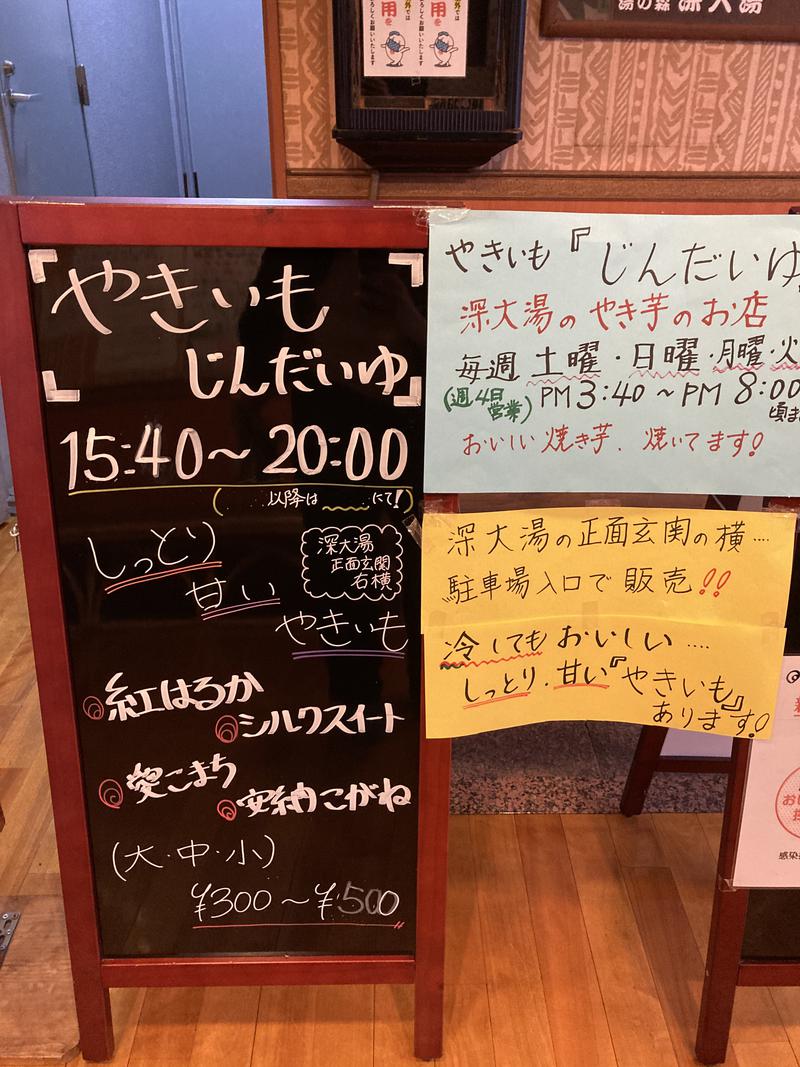 外では
用を
よろしくお願いいたします
湯の森 深大湯
やきいも
じんだいゆ
15:40～20:00
(以降は にて!)
しっとり
甘い
やきいも
深大湯
正面玄関
右横
紅はるか
シルクスイート
愛こまち
安納こがね
(大・中・小)
¥300～¥500
やきいも『じんだいゆ
深大湯のやき芋のお店
毎週 土曜・日曜・月曜・火
(週4日営業) PM3:40～PM8:00
頃ま
おいしい焼き芋、焼いてます!
深大湯の正面玄関の横....
駐車場入口で販売!!
冷してもおいしい....
しっとり、甘い『やきいも』
あります!
感染